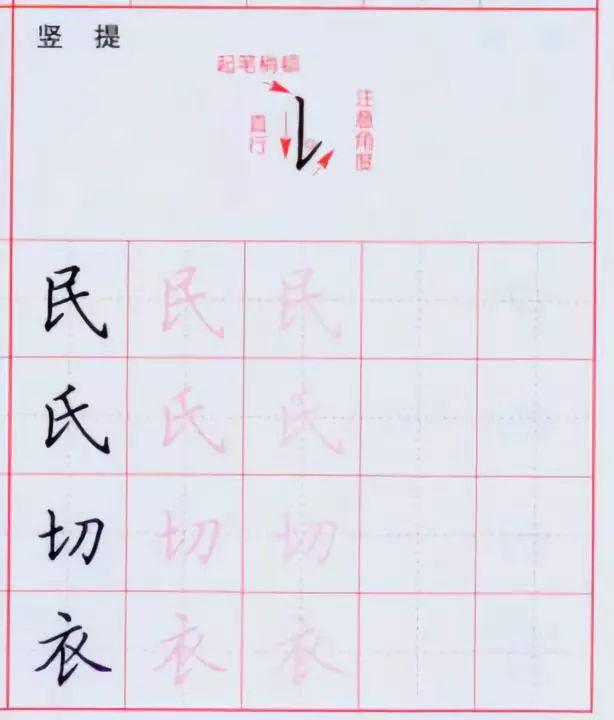 竖 提
起笔稍顿
直行
注意角度
民 民 民
氏 氏 氏
切 切 切
衣 衣 衣